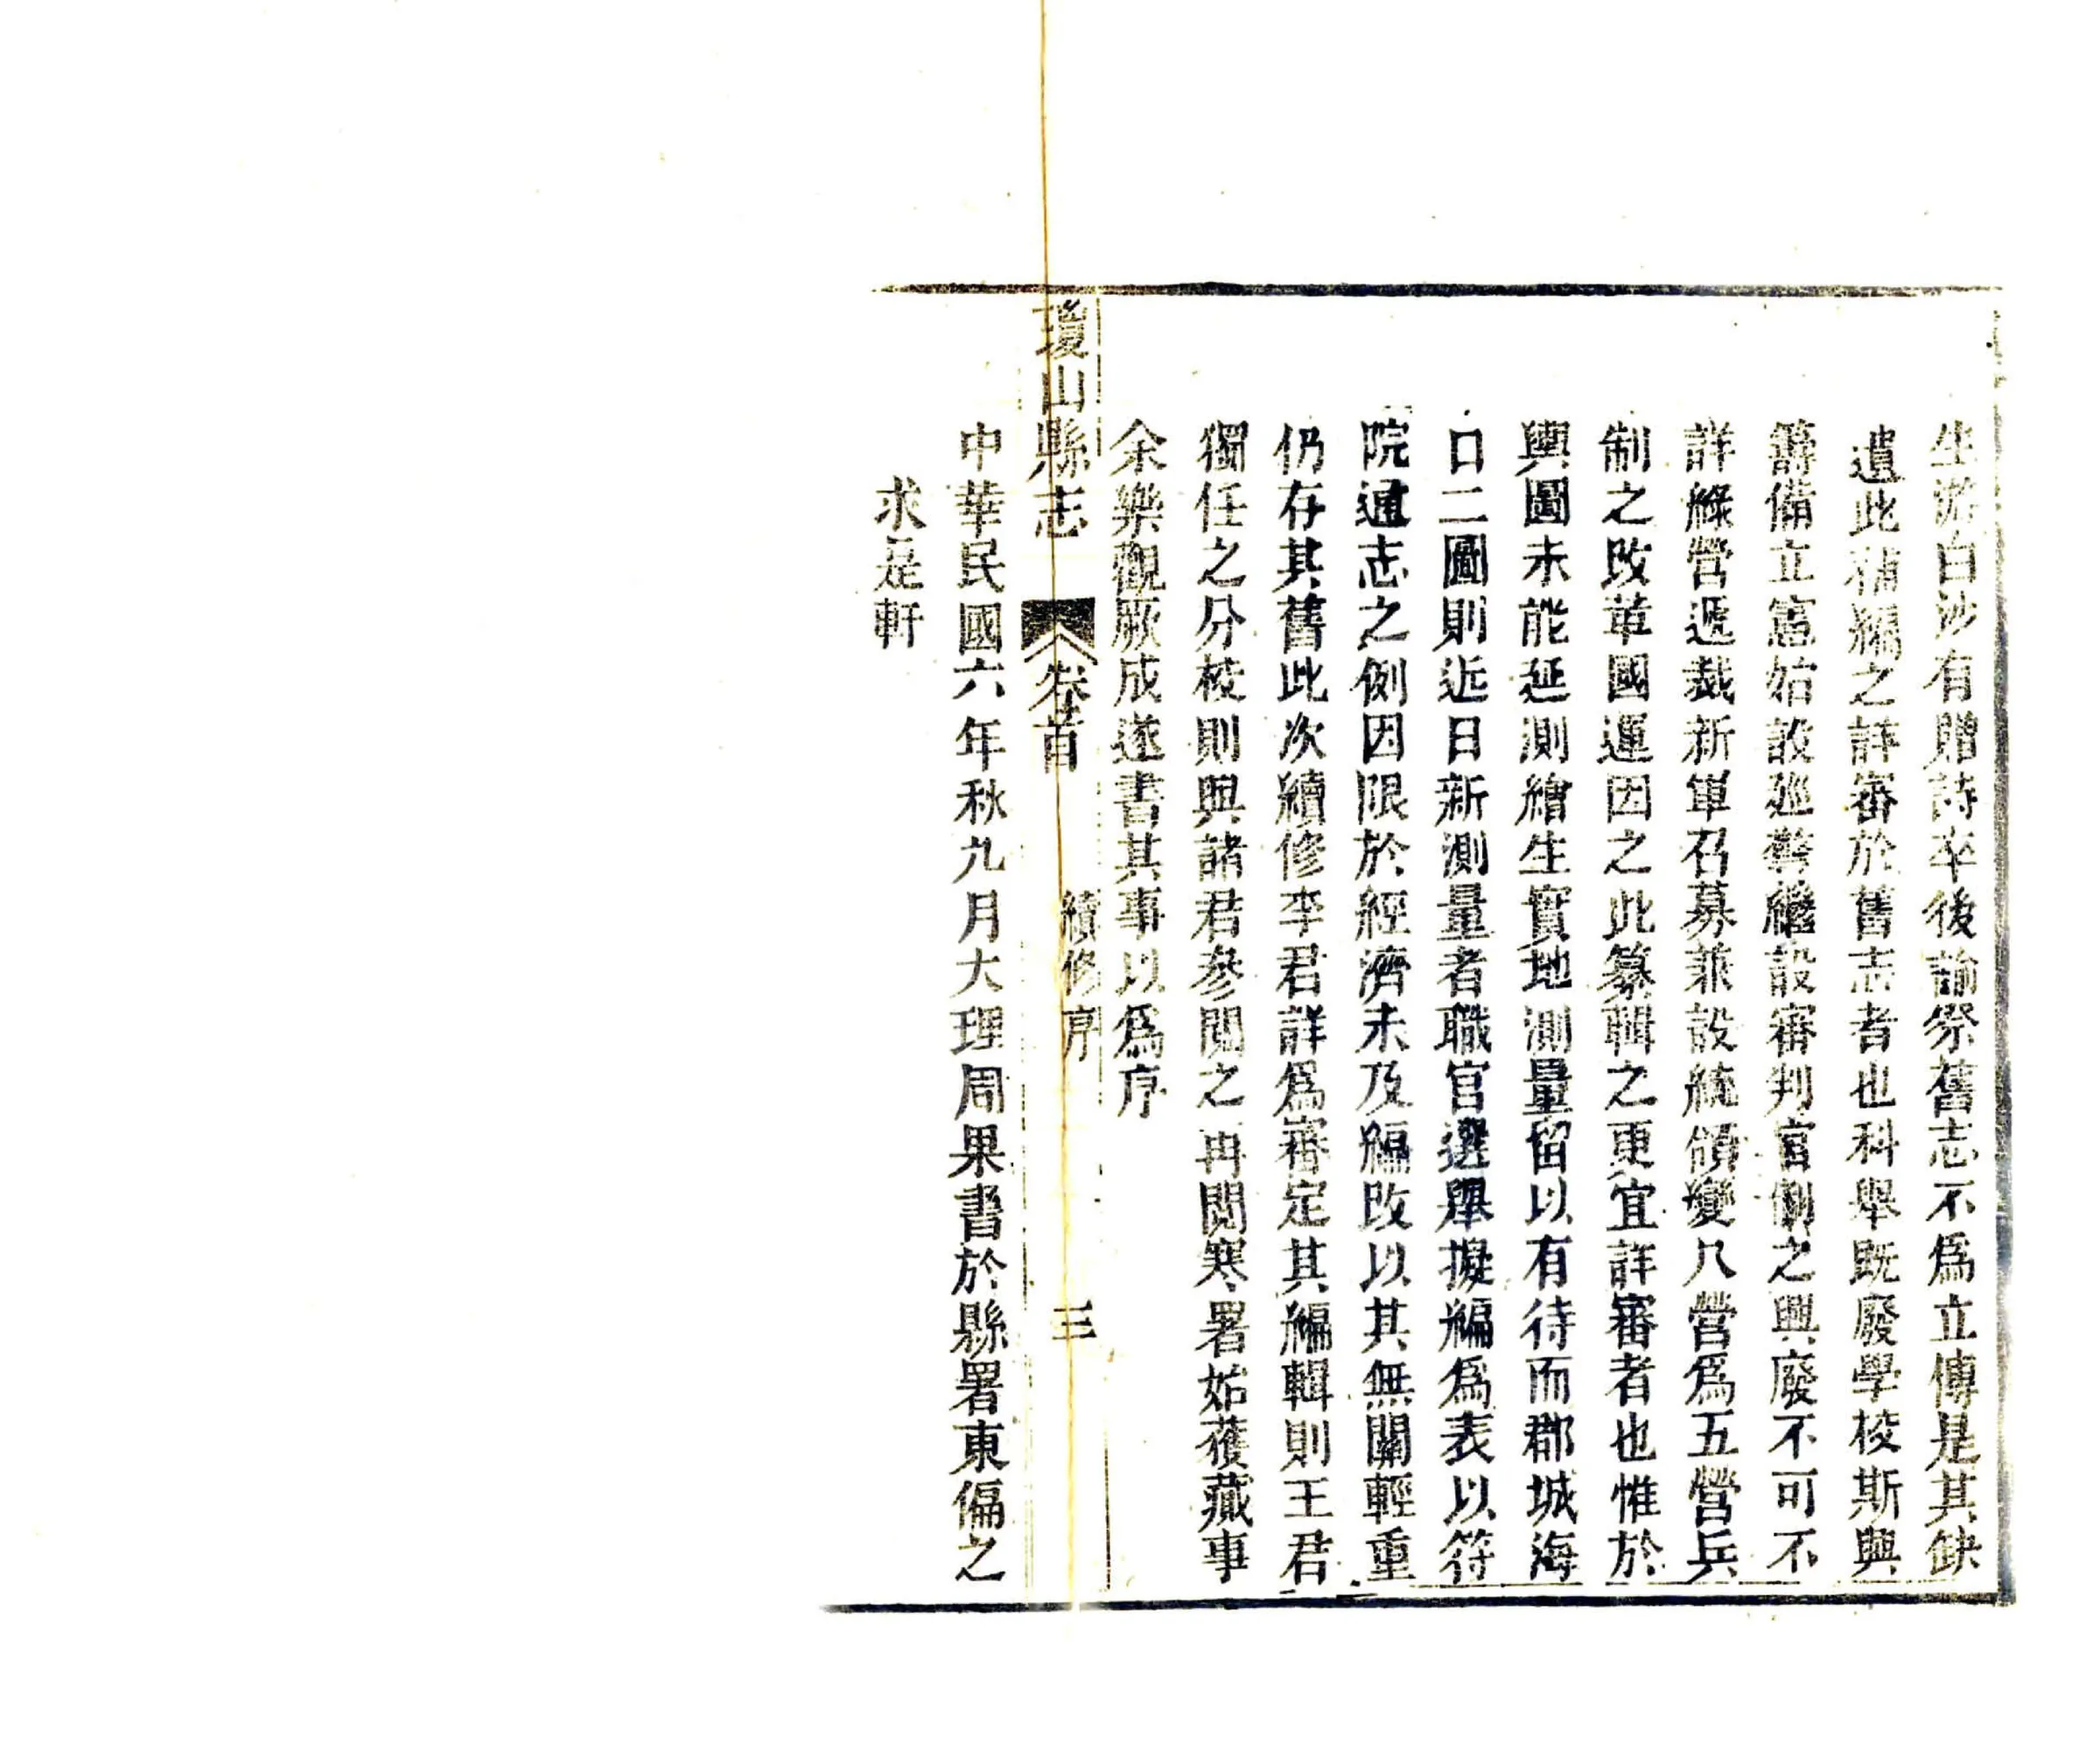 生游白沙有贈詩卒後諭祭舊志不爲立傳是其缺
遺此補編之詳審於舊志者也科舉既廢學校斯興
籌備立憲始設巡警繼設審判官制之興廢不可不
詳綠營遞裁新軍召募兼設統領變八營爲五營兵
制之改革國運因之此纂輯之更宜詳審者也惟於
輿圖未能延測繪生實地測量留以有待而郡城海
口二圖則近日新測量者職官選舉擬編爲表以符
院通志之例因限於經濟未及編改以其無關輕重
仍存其舊此次續修李君詳爲審定其編輯則王君
獨任之分校則與諸君參閱之冉閱寒署始蕆事
余樂觀厥成遂書其事以爲序
瓊山縣志 卷首 續修序 三
中華民國六年秋九月大理周果書於縣署東偏之
求是軒